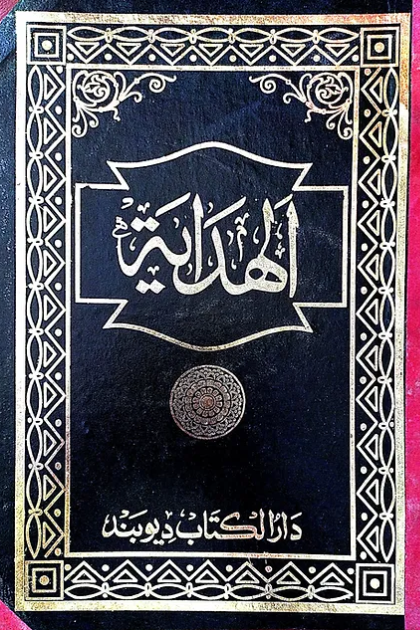 الهداية
دار الكتاب ديوبند